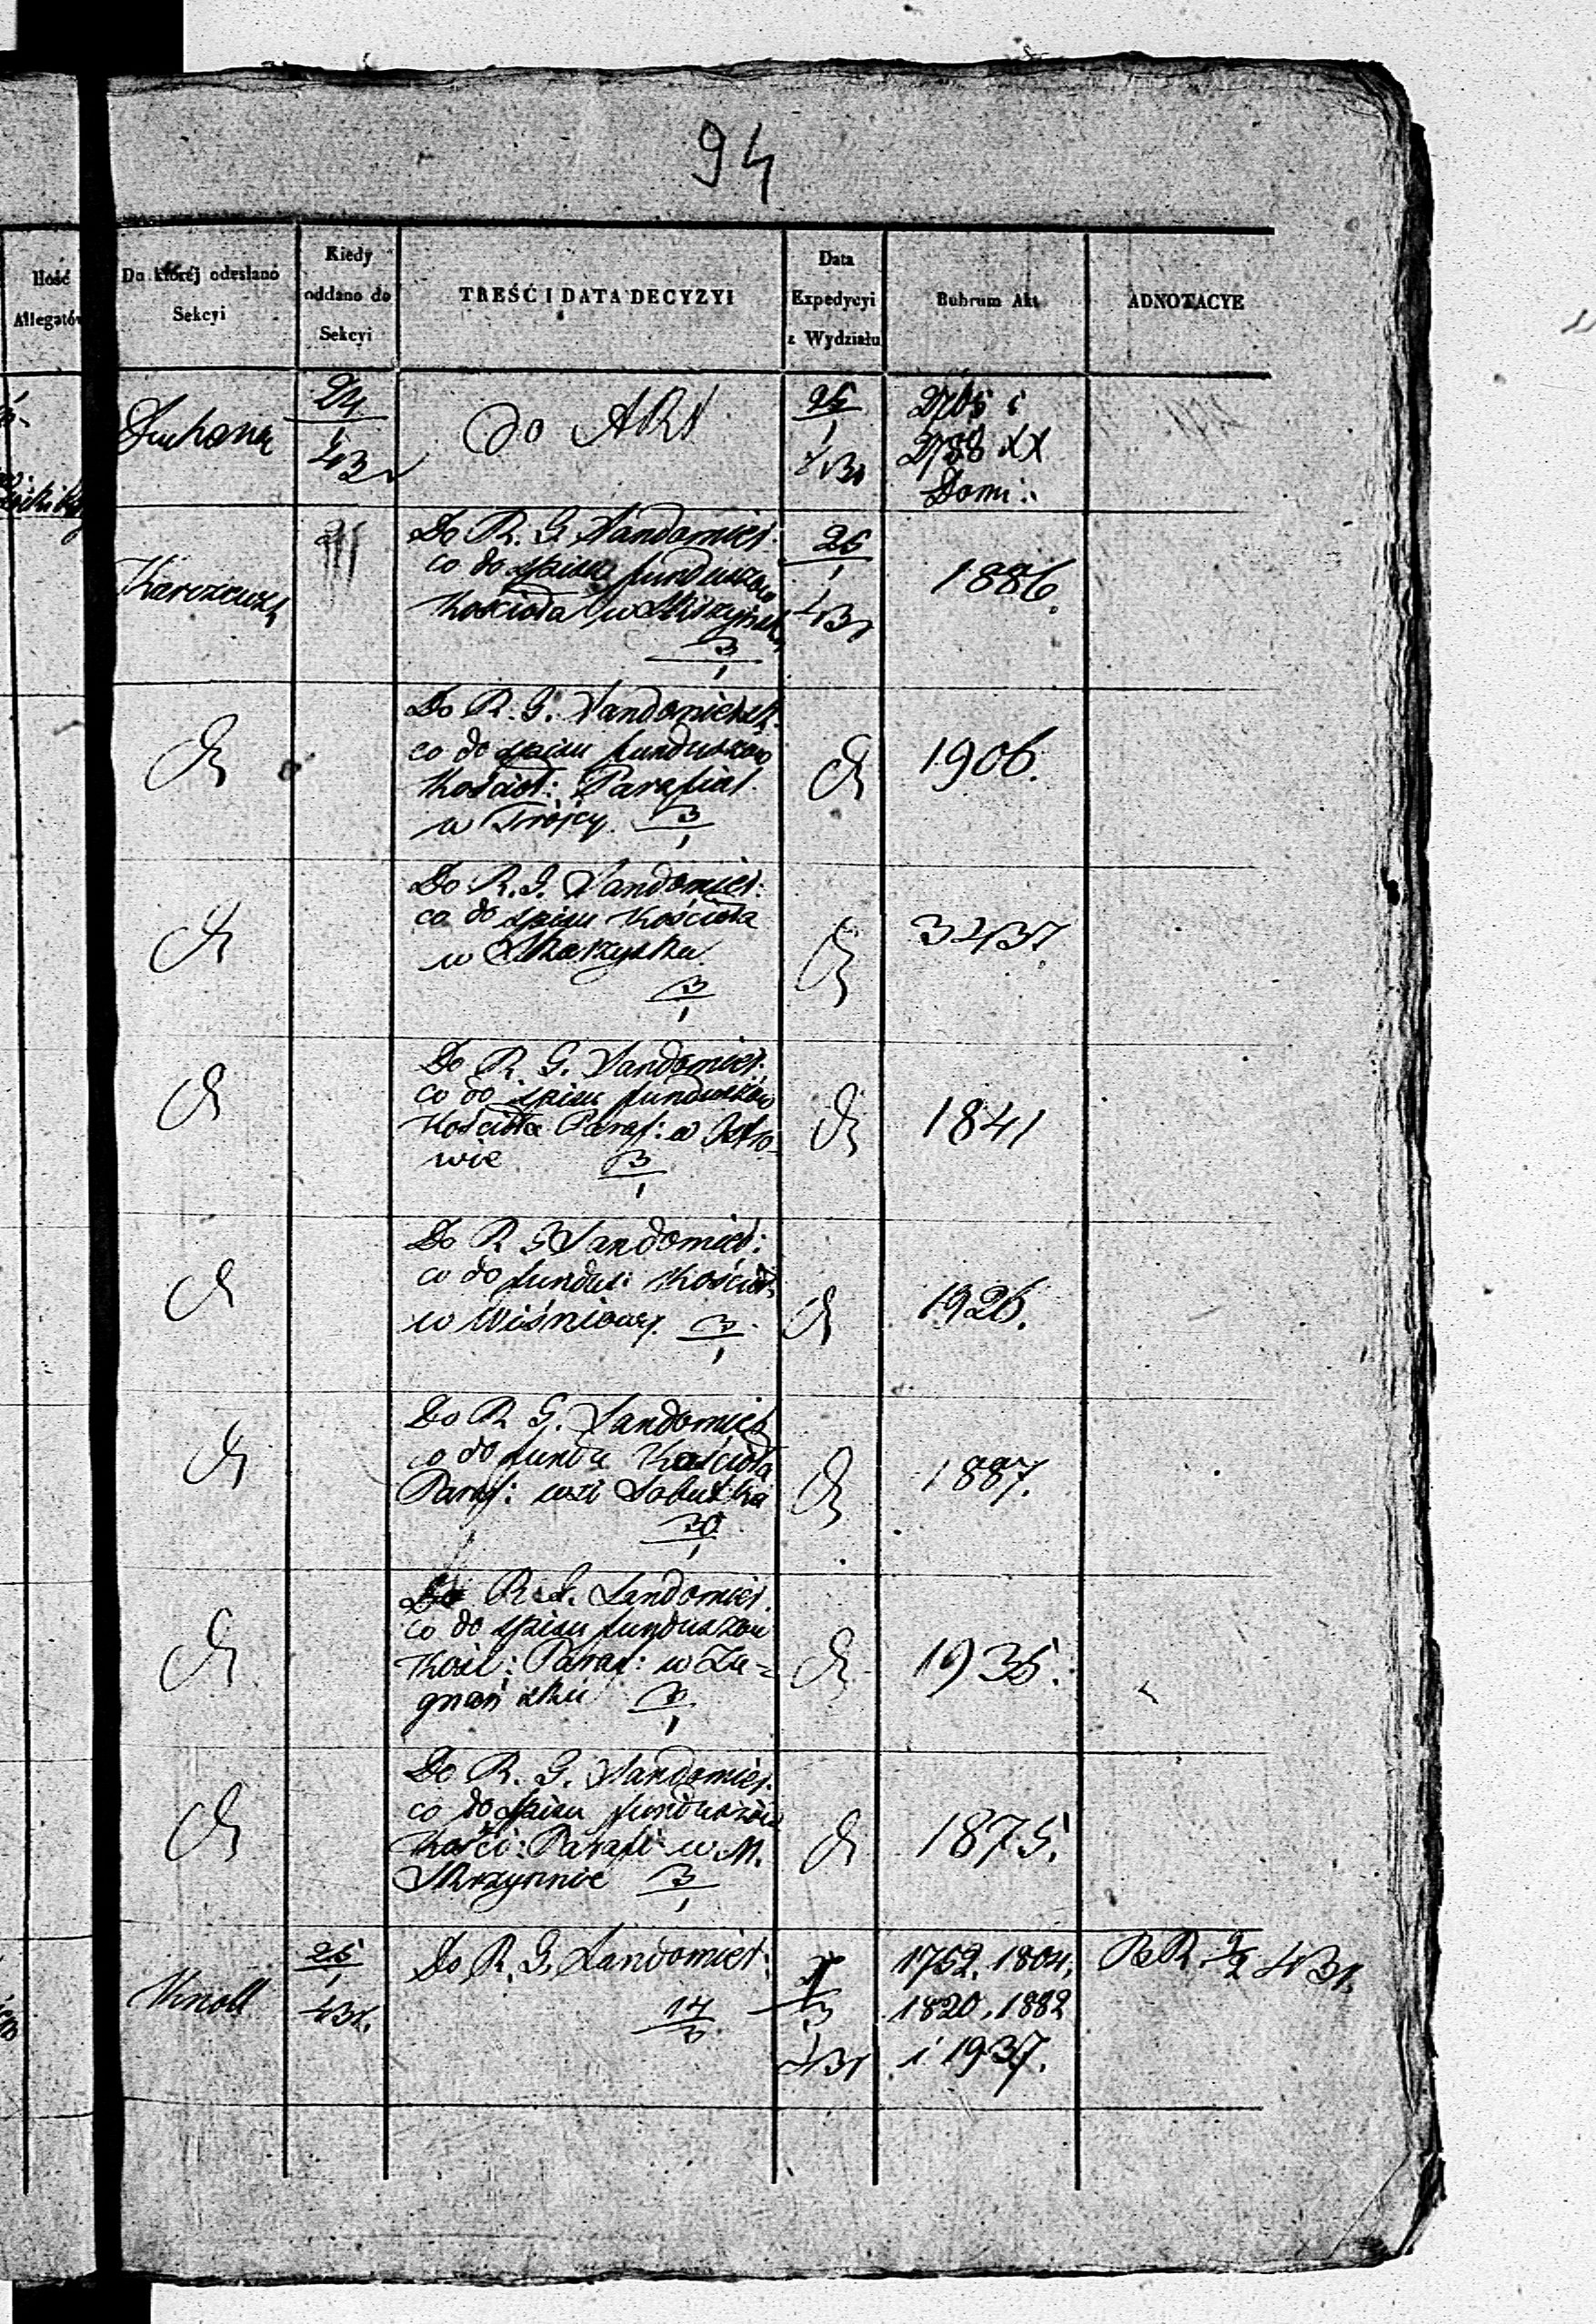 94
Ilość
Allegatów
Do której odesłano
Sekcyi
Kiedy
oddano do
Sekcyi
TREŚĆ I DATA DECYZYI
Data
Expedycyi
z Wydziału
Rubrum Akt
ADNOTACYE
24
1
43
do
25
1
43
i
2738 XX
Domi:
Do R. G. Sandomier:
co do spisu funduszów
Kościoła w
3
1
25
1
43
1886.
Do R. G. Sandomiersk.
co do spisu funduszów
Kościoł: Parafial.
w Trójcy. 3
1
1906.
Do R. G. Sandomier:
co do spisu Kościoła
w Skarzysku.
3
1
3437
Do R. G. Sandomier:
co do spisu funduszów
Kościoła Paraf: w
wie 3
1
1841
Do R G Sandomier:
co do fundus: Kościoła
w Wiśniowy. 3
1
1926.
Do R G. Sandomier
co do Kościoła
Paraf: wsi
30
1
1887.
Do R. G. Sandomier.
co do spisu funduszów
Kośc: Paraf: w Za-
gnańsku 3
1
1935.
Do R. G. Sandomier.
co do spisu funduszów
Kości: Parafi: w M.
Skrzynnie 3
1
1875.
Knoll
25
1
43
Do R. G. Sandomier:
14
3
3
43
1752. 1804,
1820, 1882
i 1937.